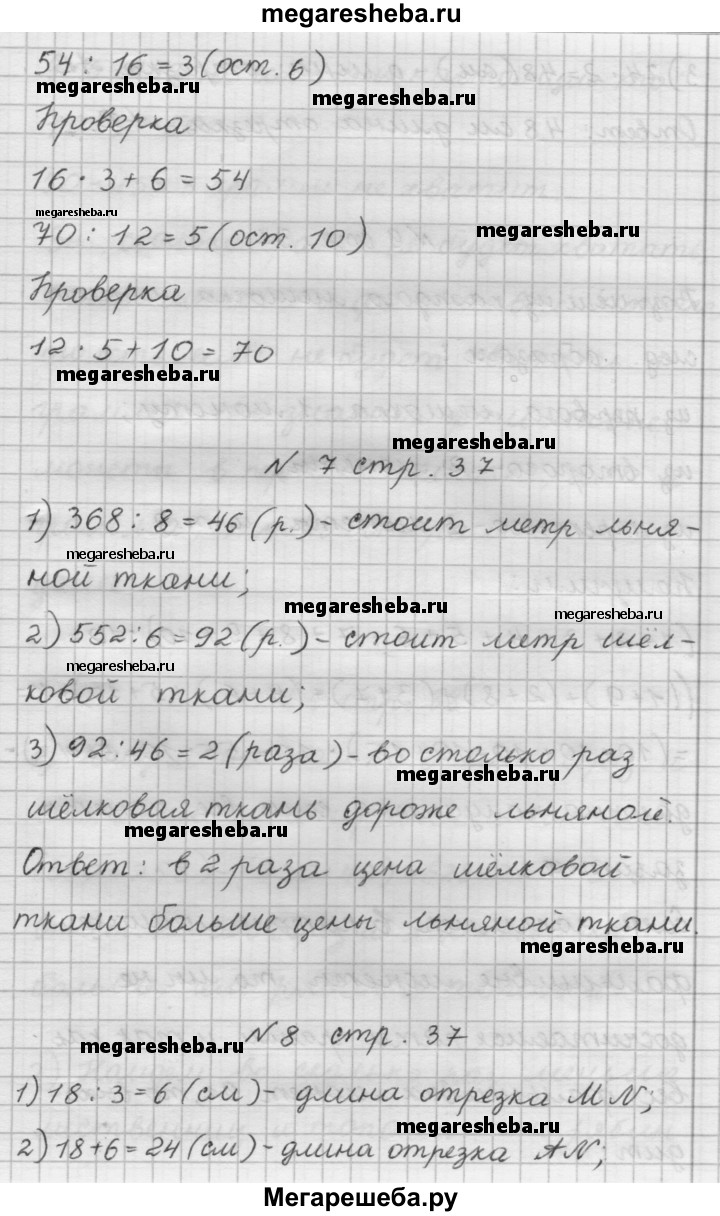 megaresheba.ru
54 : 16 = 3 (ост. 6)
megaresheba.ru
megaresheba.ru
Проверка
16 · 3 + 6 = 54
megaresheba.ru
70 : 12 = 5 (ост. 10)
megaresheba.ru
Проверка
12 · 5 + 10 = 70
megaresheba.ru
megaresheba.ru
N 7 стр. 37
1) 368 : 8 = 46 (р.) - стоит метр льня-
megaresheba.ru
ной ткани;
megaresheba.ru
megaresheba.ru
2) 552 : 6 = 92 (р.) - стоит метр шёл-
megaresheba.ru
ковой ткани;
3) 92 : 46 = 2 (раза) - во столько раз
megaresheba.ru
шёлковая ткань дороже льняной.
megaresheba.ru
Ответ: в 2 раза цена шёлковой
ткани больше цены льняной ткани.
megaresheba.ru
N 8 стр. 37
megaresheba.ru
1) 18 : 3 = 6 (см) - длина отрезка MN;
megaresheba.ru
2) 18 + 6 = 24 (см) - длина отрезка AN;
Мегарешеба.ру